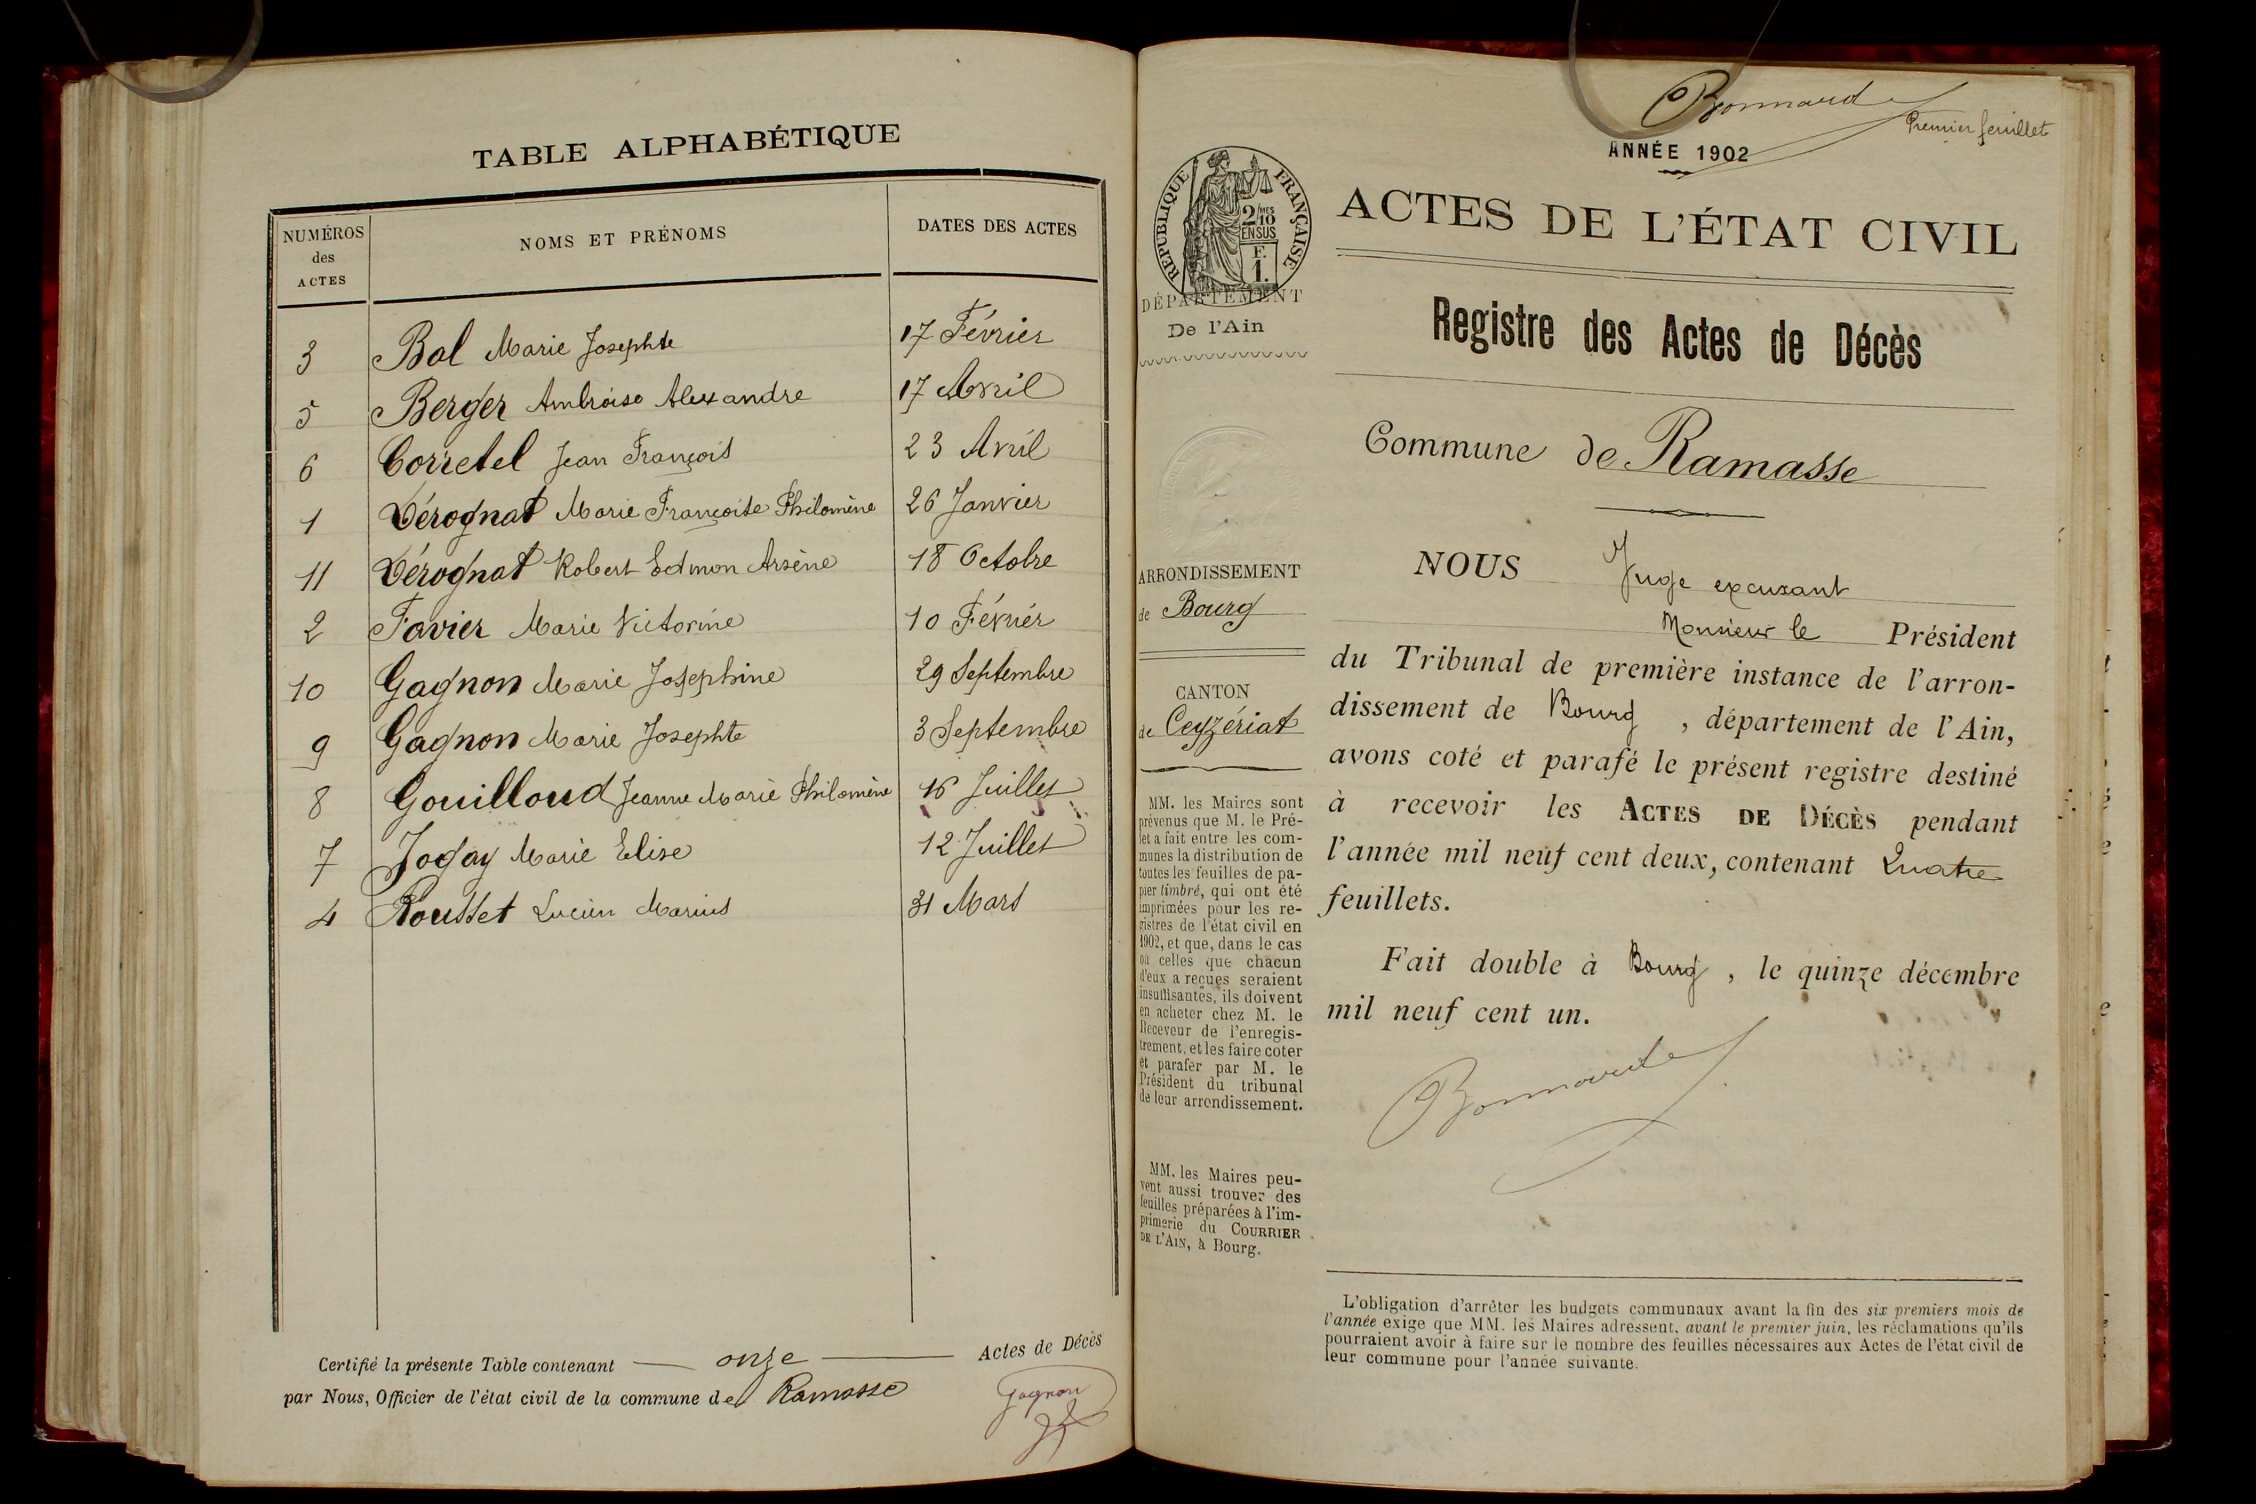 TABLE ALPHABÉTIQUE
NUMÉROS des ACTES
NOMS ET PRÉNOMS
DATES DES ACTES
3 Bal Marie Josephte 17 Février
5 Berger Ambroise Alexandre 17 Avril
6 Corretel Jean François 23 Avril
1 Dérognat Marie Françoise Philomène 26 Janvier
11 Dérognat Robert Edmon Arsène 18 Octobre
2 Favier Marie Victorine 10 Février
10 Gagnon Marie Josephine 29 Septembre
9 Gagnon Marie Josephte 3 Septembre
8 Gouilloud Jeanne Marie Philomène 16 Juillet
7 Jogay Marie Elise 12 Juillet
4 Rousset Lucien Marius 31 Mars
Certifié la présente Table contenant onze Actes de Décès
par Nous, Officier de l'état civil de la commune de Ramasse
Gagnon
Bonnard
Premier feuillet
ANNÉE 1902
RÉPUBLIQUE FRANÇAISE
2/10 MES
EN SUS
F.
1.
DÉPARTEMENT
De l'Ain
ARRONDISSEMENT
de Bourg
CANTON
de Ceyzériat
MM. les Maires sont
prévenus que M. le Pré-
fet a fait entre les com-
munes la distribution de
toutes les feuilles de pa-
pier timbré, qui ont été
imprimées pour les re-
gistres de l'état civil en
1902, et que, dans le cas
où celles que chacun
d'eux a reçues seraient
insuffisantes, ils doivent
en acheter chez M. le
Receveur de l'enregis-
trement, et les faire coter
et parafer par M. le
Président du tribunal
de leur arrondissement.
MM. les Maires peu-
vent aussi trouver des
feuilles préparées à l'im-
primerie du COURRIER
DE L'AIN, à Bourg.
ACTES DE L'ÉTAT CIVIL
Registre des Actes de Décès
Commune de Ramasse
NOUS Juge excusant
Monsieur le Président
du Tribunal de première instance de l'arron-
dissement de Bourg , département de l'Ain,
avons coté et parafé le présent registre destiné
à recevoir les ACTES DE DÉCÈS pendant
l'année mil neuf cent deux, contenant Quatre
feuillets.
Fait double à Bourg , le quinze décembre
mil neuf cent un.
Bonnard
L'obligation d'arrêter les budgets communaux avant la fin des six premiers mois de
l'année exige que MM. les Maires adressent, avant le premier juin, les réclamations qu'ils
pourraient avoir à faire sur le nombre des feuilles nécessaires aux Actes de l'état civil de
leur commune pour l'année suivante.